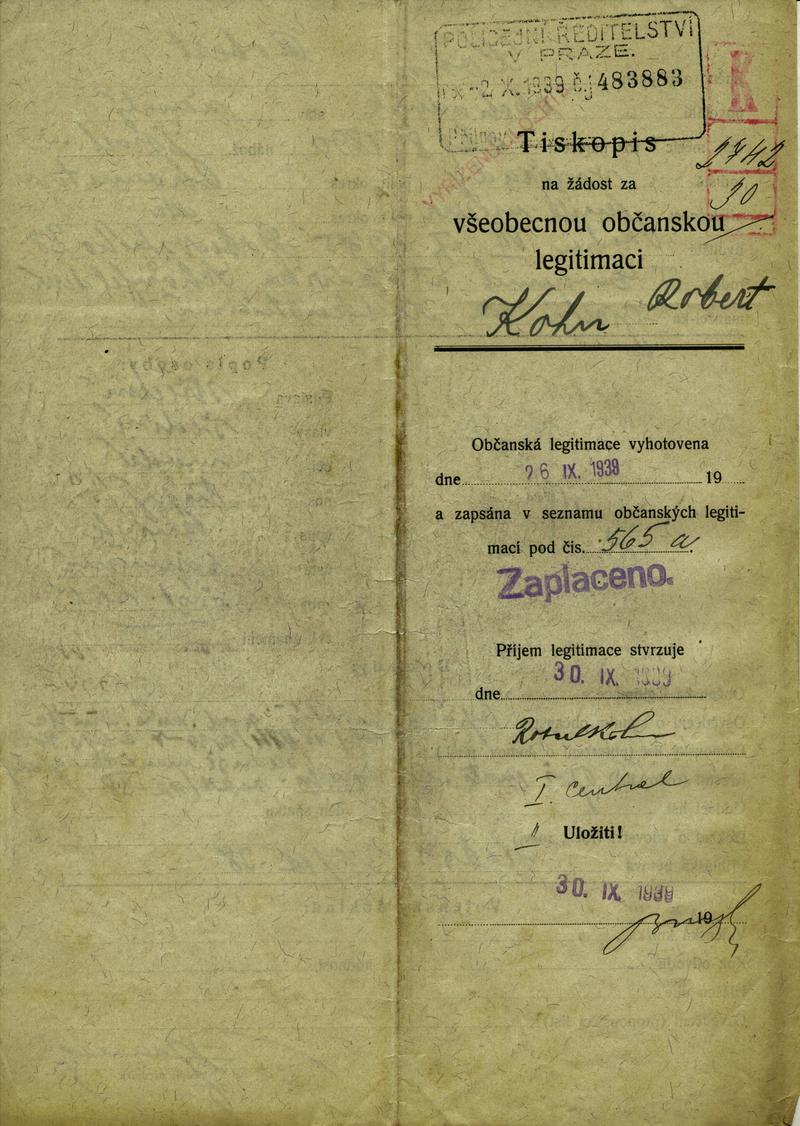 POLICEJNÍ ŘEDITELSTVÍ
V PRAZE.
-2. X. 1939 č.j. 483883
Tiskopis
1742
na žádost za
10
všeobecnou občanskou
legitimaci
Kohn Robert
Občanská legitimace vyhotovena
dne 26 IX. 1939 19
a zapsána v seznamu občanských legiti-
mací pod čís. 565 a
Zaplaceno.
Příjem legitimace stvrzuje
30. IX. 1939
dne
Robert Kohn
I. Central
Uložiti!
30. IX 1939
19